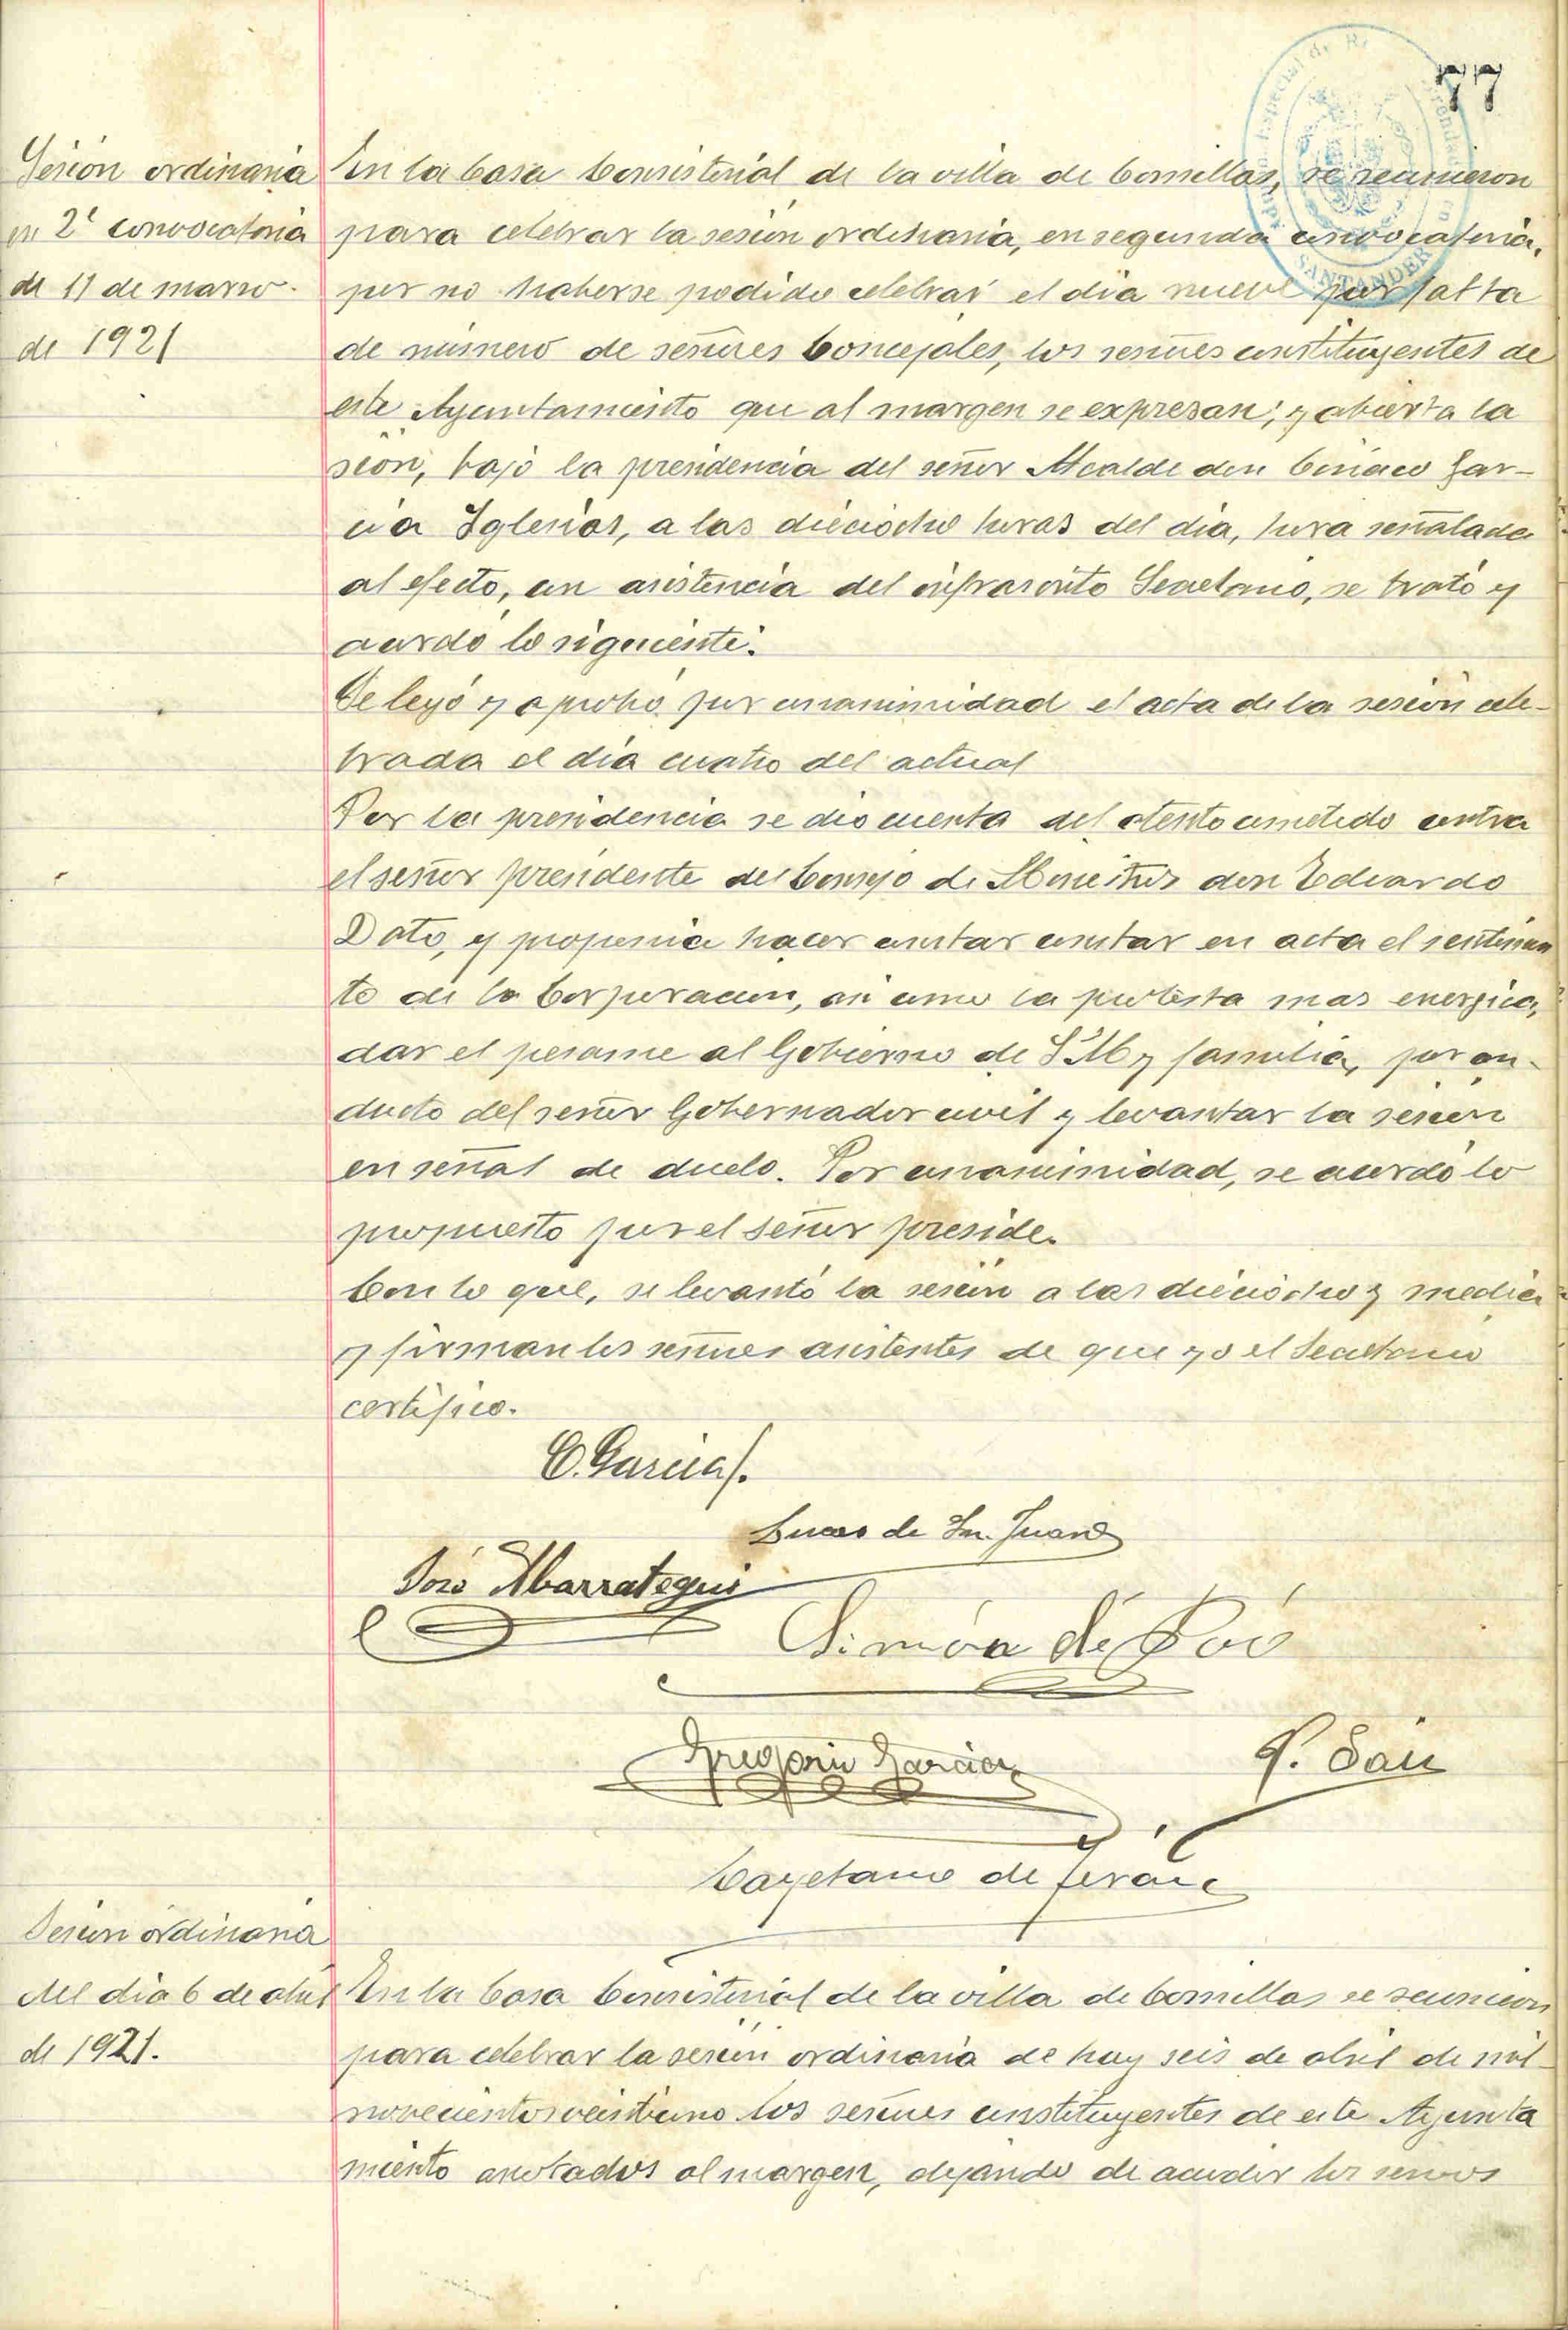 77
Sesión ordinaria
en 2ª convocatoria
de 11 de marzo
de 1921
En la Casa Consistorial de la villa de Comillas, se reunieron
para celebrar la sesión ordinaria, en segunda convocatoria,
por no haberse podido celebrar el día nueve por falta
de número de señores Concejales, los señores constituyentes de
este Ayuntamiento que al margen se expresan; y abierta la
sión, bajo la presidencia del señor Alcalde don Ciriaco Gar-
cía Iglesias, a las dieciocho horas del día, hora señalada
al efecto, con asistencia del infrascrito Secretario, se trató y
acordó lo siguiente:
Se leyó y aprobó por unanimidad el acta de la sesión cele-
brada el día cuatro del actual
Por la presidencia se dio cuenta del atento cometido contra
el señor presidente del Consejo de Ministros don Eduardo
Dato, y proponía hacer constar constar en acta el sentimien
to de la Corporación, así como la protesta mas energica,
dar el pesame al Gobierno de S.M y familia, por con-
ducto del señor Gobernador civil y levantar la sesión
en señal de duelo. Por unanimidad, se acordó lo
propuesto por el señor preside.
Con lo que, se levantó la sesión a las dieciocho y media
y firman los señores asistentes de que yo el Secretario
certifico.
C. Garcia I.
Lucas de Sn. Juan
José Abarrategui
Simón de Poó
Gregorio Garcia
Cayetano de Terán
Sesión ordinaria
del día 6 de abril
de 1921.
En la Casa Consistorial de la villa de Comillas se reunieron
para celebrar la sesión ordinaria de hoy seis de abril de mil
novecientos veintiuno los señores constituyentes de este Ayunta
miento anotados al margen, dejando de acudir los señores